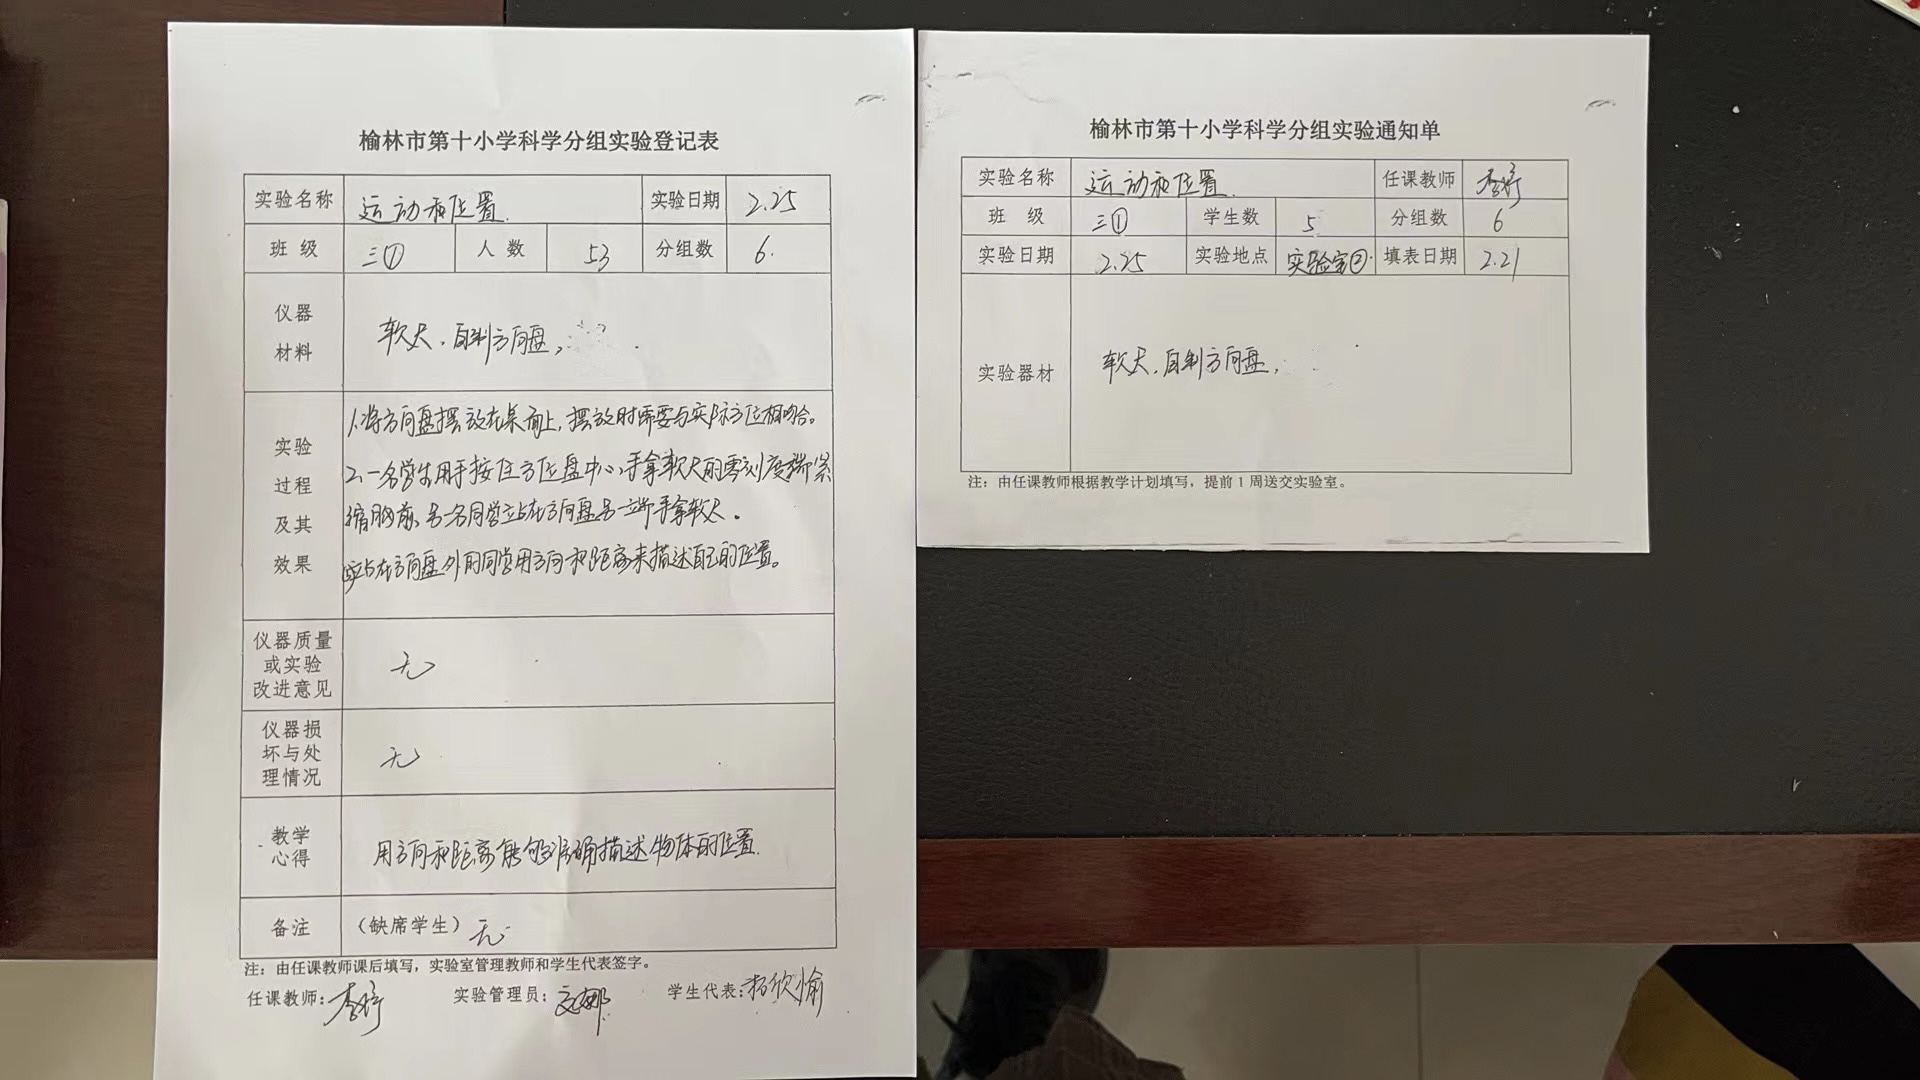 榆林市第十小学科学分组实验登记表
实验名称 运动和位置. 实验日期 2.25
班级 三① 人数 53 分组数 6.
仪器材料 软尺、自制方向盘,
实验过程及其效果
1、将方向盘摆放在桌面上,摆放时需要与实际方位相吻合。
2、一名学生用手按住方位盘中心,手拿软尺的零刻度端紧
缩胸前,另一名同学站在方向盘另一端手拿软尺。
站在方向盘外的同学用方向和距离来描述自己的位置。
仪器质量或实验改进意见 无
仪器损坏与处理情况 无
教学心得 用方向和距离能够准确描述物体的位置.
备注 (缺席学生) 无
注:由任课教师课后填写,实验室管理教师和学生代表签字。
任课教师: 李婷 实验管理员: 学生代表: 欣愉
榆林市第十小学科学分组实验通知单
实验名称 运动和位置. 任课教师 李婷
班级 三① 学生数 5 分组数 6
实验日期 2.25 实验地点 实验室②. 填表日期 2.21
实验器材 软尺、自制方向盘,
注:由任课教师根据教学计划填写,提前1周送交实验室。